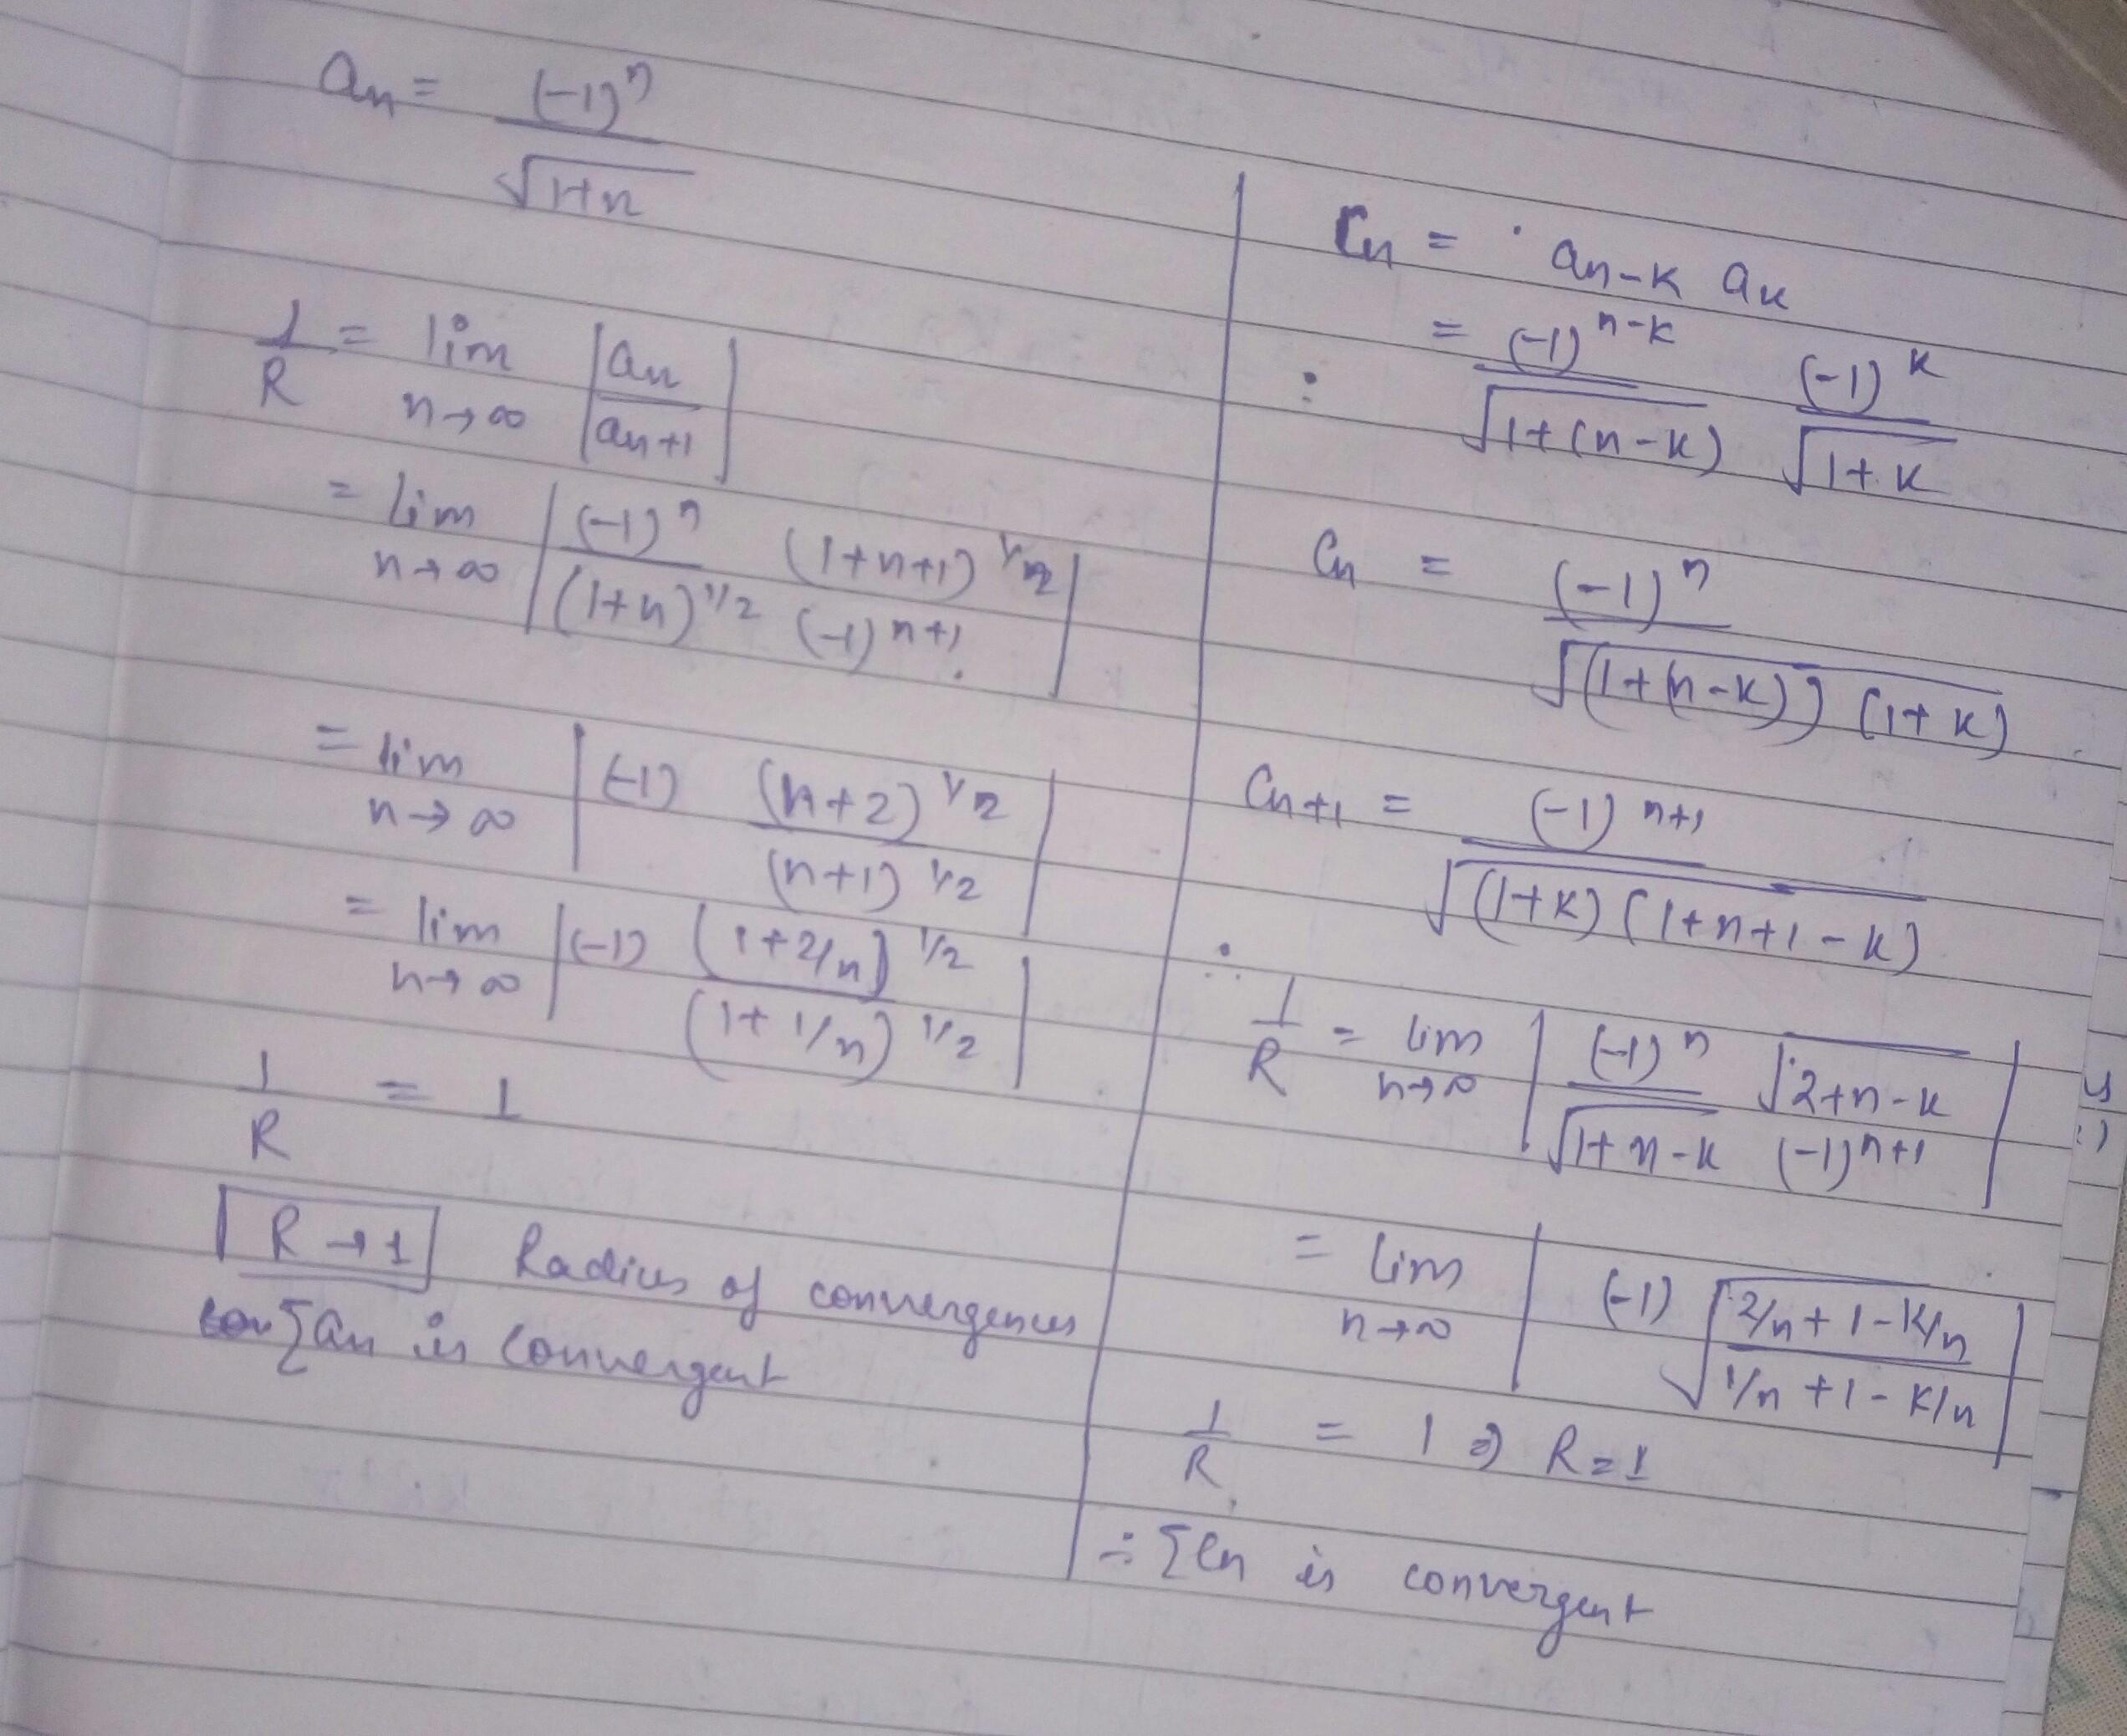 an = (-1)^n / √(1+n)
1/R = lim n→∞ |an / an+1|
= lim n→∞ |(-1)^n / (1+n)^1/2 (1+n+1)^1/2 / (-1)^n+1|
= lim n→∞ |(-1) (n+2)^1/2 / (n+1)^1/2|
= lim n→∞ |(-1) (1+2/n)^1/2 / (1+1/n)^1/2|
1/R = 1
R → 1 Radius of convergences
Σan is convergent
Cn = an-k ak
= (-1)^n-k / √(1+(n-k)) (-1)^k / √(1+k)
Cn = (-1)^n / √((1+(n-k)) (1+k))
Cn+1 = (-1)^n+1 / √((1+k) (1+n+1-k))
∴ 1/R = lim n→∞ |(-1)^n / √(1+n-k) √(2+n-k) / (-1)^n+1|
= lim n→∞ |(-1) √((2/n+1-k/n) / (1/n+1-k/n))|
1/R = 1 ⇒ R=1
∴ ΣCn is convergent